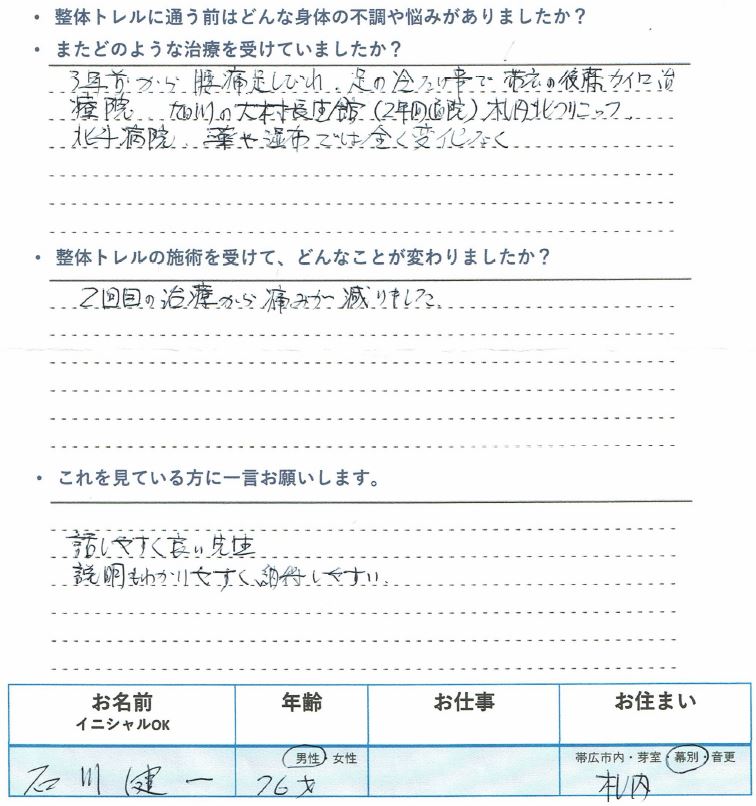 ・ 整体トレルに通う前はどんな身体の不調や悩みがありましたか？
・ またどのような治療を受けていましたか？
3年前から 腰痛足しびれ、足の冷たい事で 帯広の後藤カイロ治
療院、旭川の大村長生館（2年間通院）札内北クリニック、
北斗病院、薬や湿布では全く変化なく
・ 整体トレルの施術を受けて、どんなことが変わりましたか？
2回目の治療から痛みが減りました
・ これを見ている方に一言お願いします。
話しやすく良い先生
説明もわかりやすく、納得しやすい.
お名前 年齢 お仕事 お住まい
イニシャルOK
男性・女性 帯広市内・芽室・幕別・音更
石川 健一 76才 札内